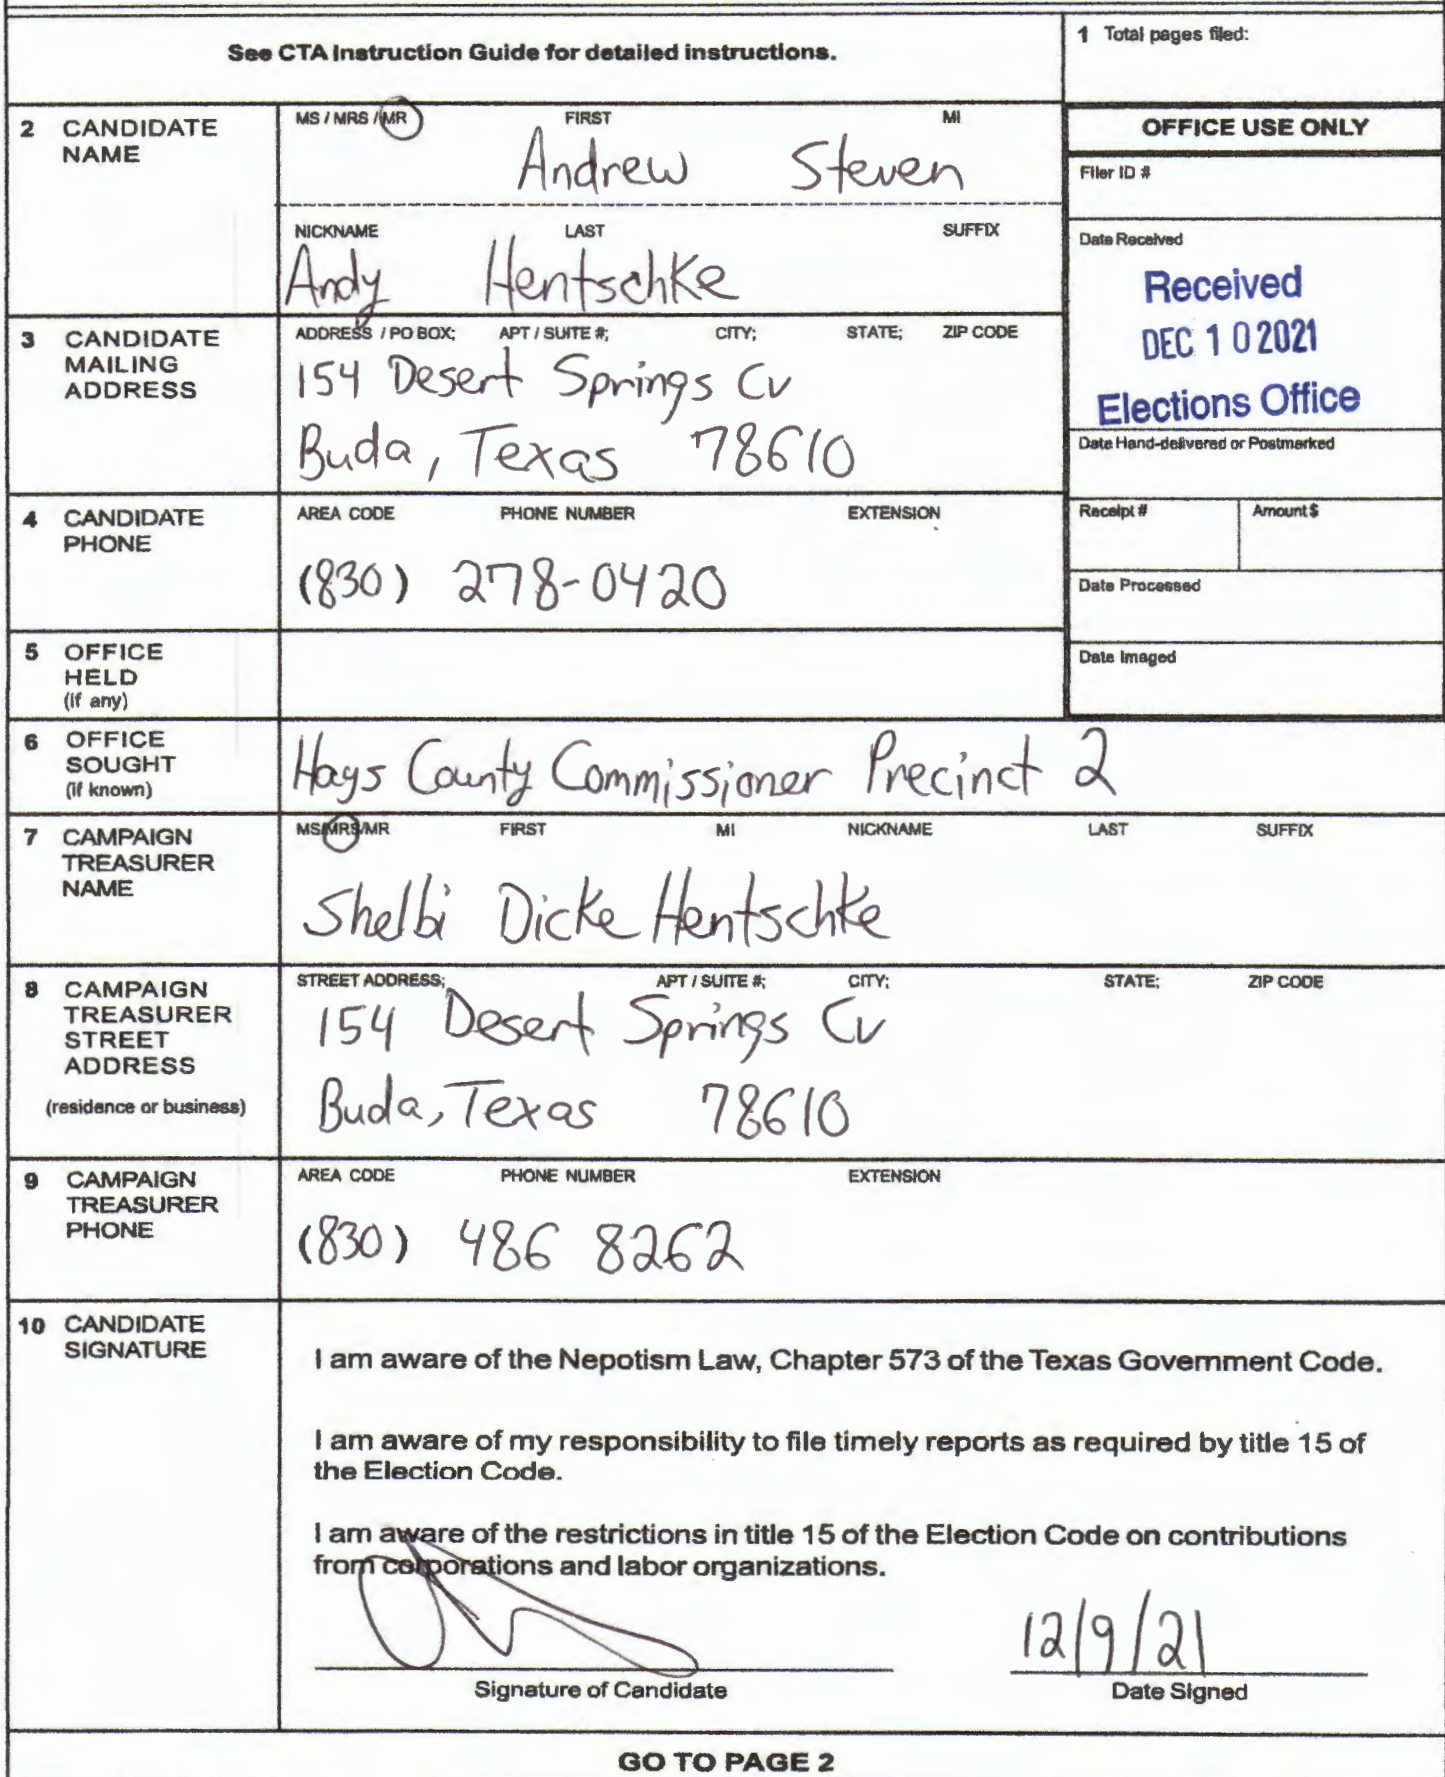 See CTA Instruction Guide for detailed instructions.
1 Total pages filed:
2 CANDIDATE NAME
MS / MRS / MR FIRST MI
Andrew Steven
NICKNAME LAST SUFFIX
Andy Hentschke
OFFICE USE ONLY
Filer ID #
Date Received
Received
DEC 10 2021
Elections Office
Date Hand-delivered or Postmarked
Receipt # Amount $
Date Processed
Date Imaged
3 CANDIDATE MAILING ADDRESS
ADDRESS / PO BOX; APT / SUITE #; CITY; STATE; ZIP CODE
154 Desert Springs Cv
Buda, Texas 78610
4 CANDIDATE PHONE
AREA CODE PHONE NUMBER EXTENSION
(830) 278-0420
5 OFFICE HELD
(if any)
6 OFFICE SOUGHT
(if known)
Hays County Commissioner Precinct 2
7 CAMPAIGN TREASURER NAME
MS/MRS/MR FIRST MI NICKNAME LAST SUFFIX
Shelbi Dicke Hentschke
8 CAMPAIGN TREASURER STREET ADDRESS
(residence or business)
STREET ADDRESS; APT / SUITE #; CITY; STATE; ZIP CODE
154 Desert Springs Cv
Buda, Texas 78610
9 CAMPAIGN TREASURER PHONE
AREA CODE PHONE NUMBER EXTENSION
(830) 486 8262
10 CANDIDATE SIGNATURE
I am aware of the Nepotism Law, Chapter 573 of the Texas Government Code.
I am aware of my responsibility to file timely reports as required by title 15 of
the Election Code.
I am aware of the restrictions in title 15 of the Election Code on contributions
from corporations and labor organizations.
12/9/21
Signature of Candidate Date Signed
GO TO PAGE 2